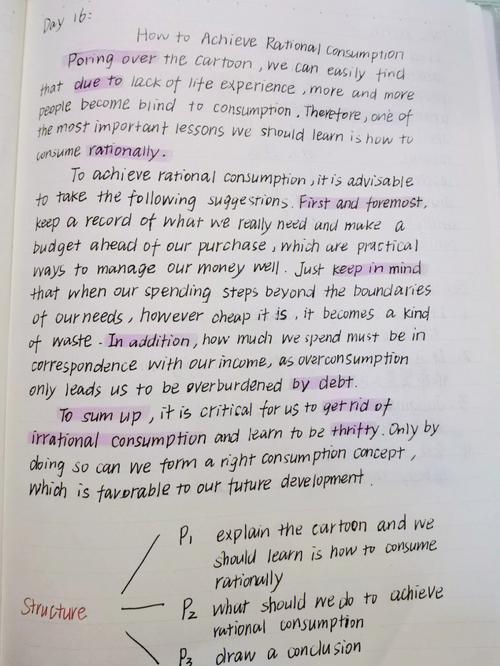 Day 16:
How to Achieve Rational Consumption
Poring over the cartoon, we can easily find
that due to lack of life experience, more and more
people become blind to consumption. Therefore, one of
the most important lessons we should learn is how to
consume rationally.
To achieve rational consumption, it is advisable
to take the following suggestions. First and foremost,
keep a record of what we really need and make a
budget ahead of our purchase, which are practical
ways to manage our money well. Just keep in mind
that when our spending steps beyond the boundaries
of our needs, however cheap it is, it becomes a kind
of waste. In addition, how much we spend must be in
correspondence with our income, as overconsumption
only leads us to be overburdened by debt.
To sum up, it is critical for us to get rid of
irrational consumption and learn to be thrifty. Only by
doing so can we form a right consumption concept,
which is favorable to our future development.
P1 explain the cartoon and we
should learn is how to consume
rationally
Structure
P2 what should we do to achieve
rational consumption
P3 draw a conclusion